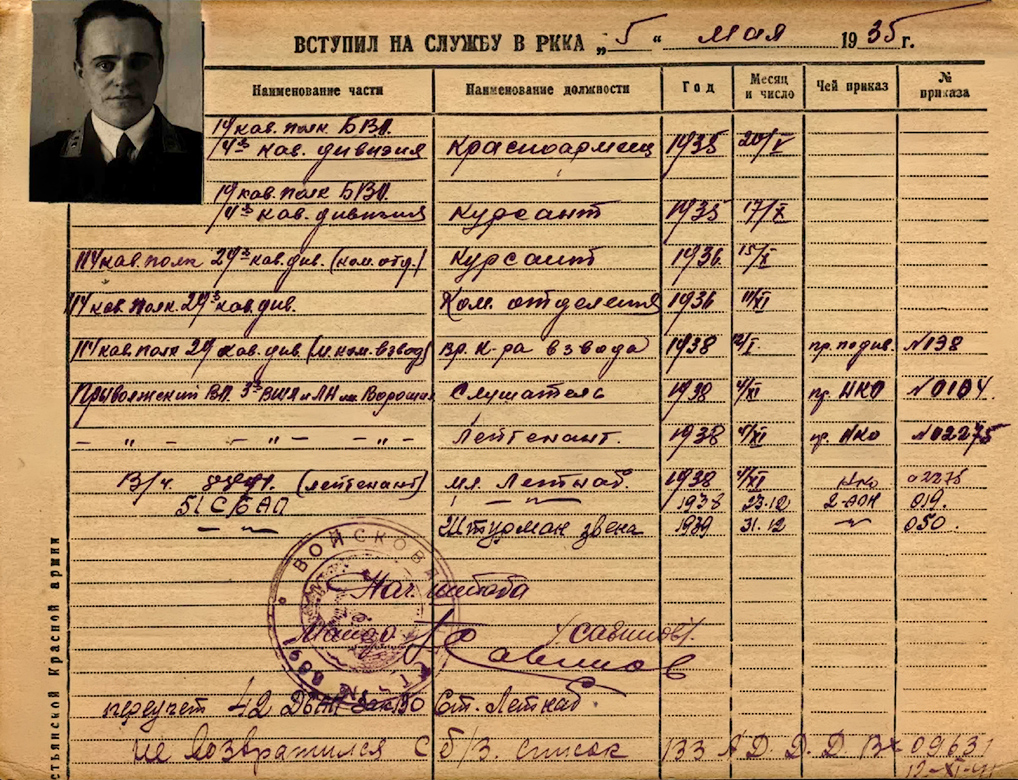 ВСТУПИЛ НА СЛУЖБУ В РККА „5" мая 1935 г.
Наименование части Наименование должности Год Месяц и число Чей приказ № приказа
14 кав. полк БВО.
4й кав. дивизия Красноармеец 1935 20/V
14 кав. полк БВО.
4й кав. дивизия Курсант 1935 17/X
114 кав. полк 29й кав. див. (ком. отд.) Курсант 1936 15/X
114 кав. полк. 29й кав. див. Ком. отделения 1936 11/XI
114 кав. полк 29 кав. див. (и. ком. взвод) Вр. к-ра взвода 1938 12/I пр. по див. №138
Приволжский ВО. 3й ВШЛ и ЛН им Ворошил Слушатель 1938 4/XI пр. НКО №0104.
– " – – " – – " – Лейтенант. 1938 4/XI пр. НКО №02275
В/ч. (лейтенант) мл. Летнаб. 1938 4/XI НКО 02275
51 СБАП – " – 1938 23.12 2-АОН 019.
– " – Штурман звена 1939 31.12 – " – 050.
ВОЙСКОВАЯ
Нач штаба
Майор (Савинов).
Савинов
переучет 42 ДБАП Ст. Летнаб
Не возвратился с б/з. список 133 А.Д.Д.Д. Вх 09631
стьянской Красной армии